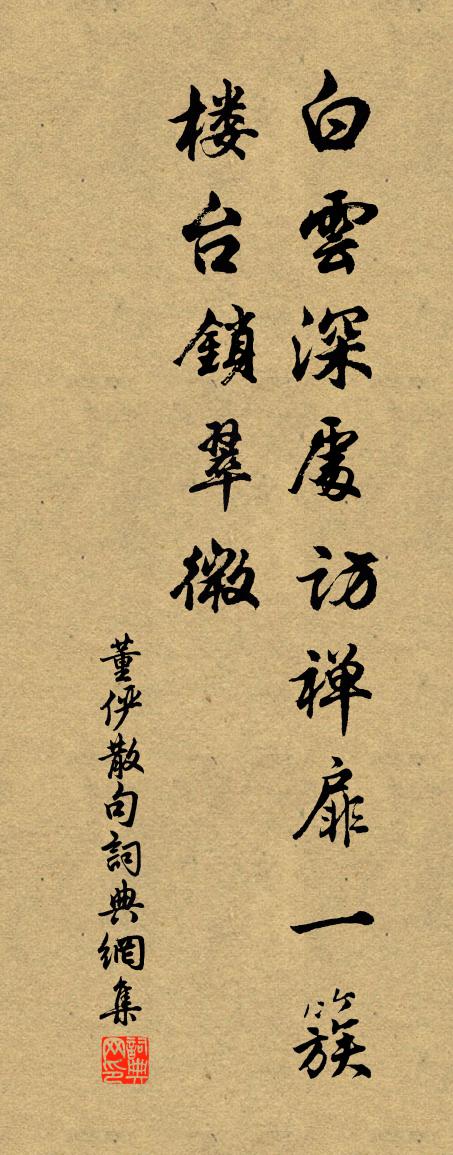 白雲深處訪禅扉一簇
楼台鎖翠微
董伊散句詞典網集
詞典网印